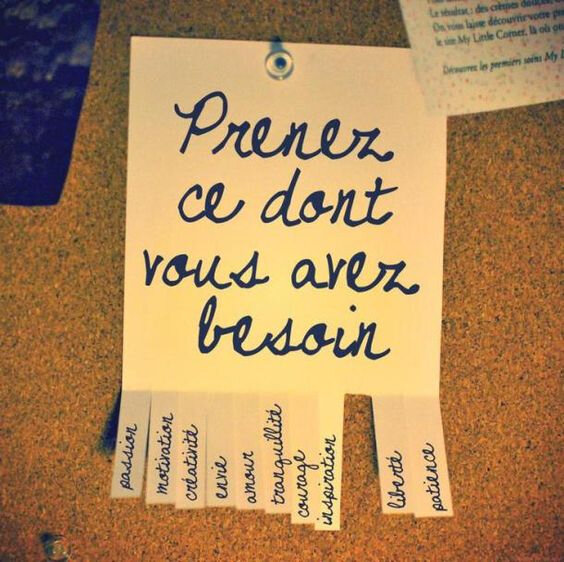 Le résultat : des crèmes douces,
On vous laisse découvrir votre p
le site My Little Corner, là où o
Découvrez les premiers soins My L
Prenez
ce dont
vous avez
besoin
passion
motivation
créativité
envie
amour
tranquillité
courage
inspiration
liberté
patience